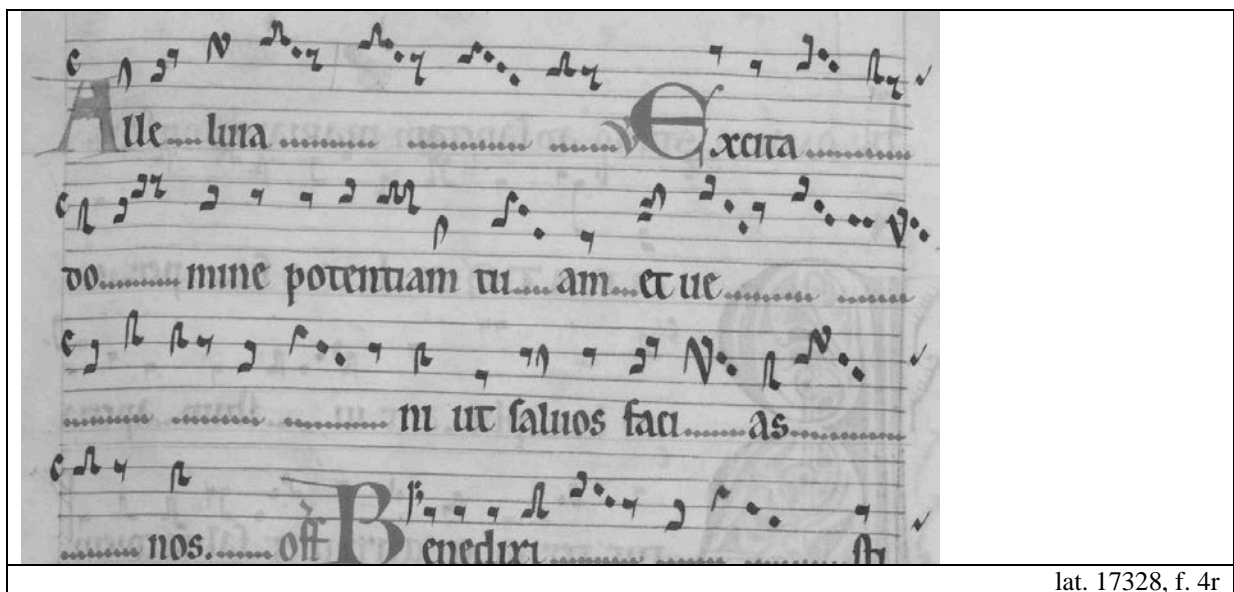 Alle luia V Excita
do mine potentiam tu am et ue
ni ut saluos faci as
nos. off Benedixi sti
lat. 17328, f. 4r